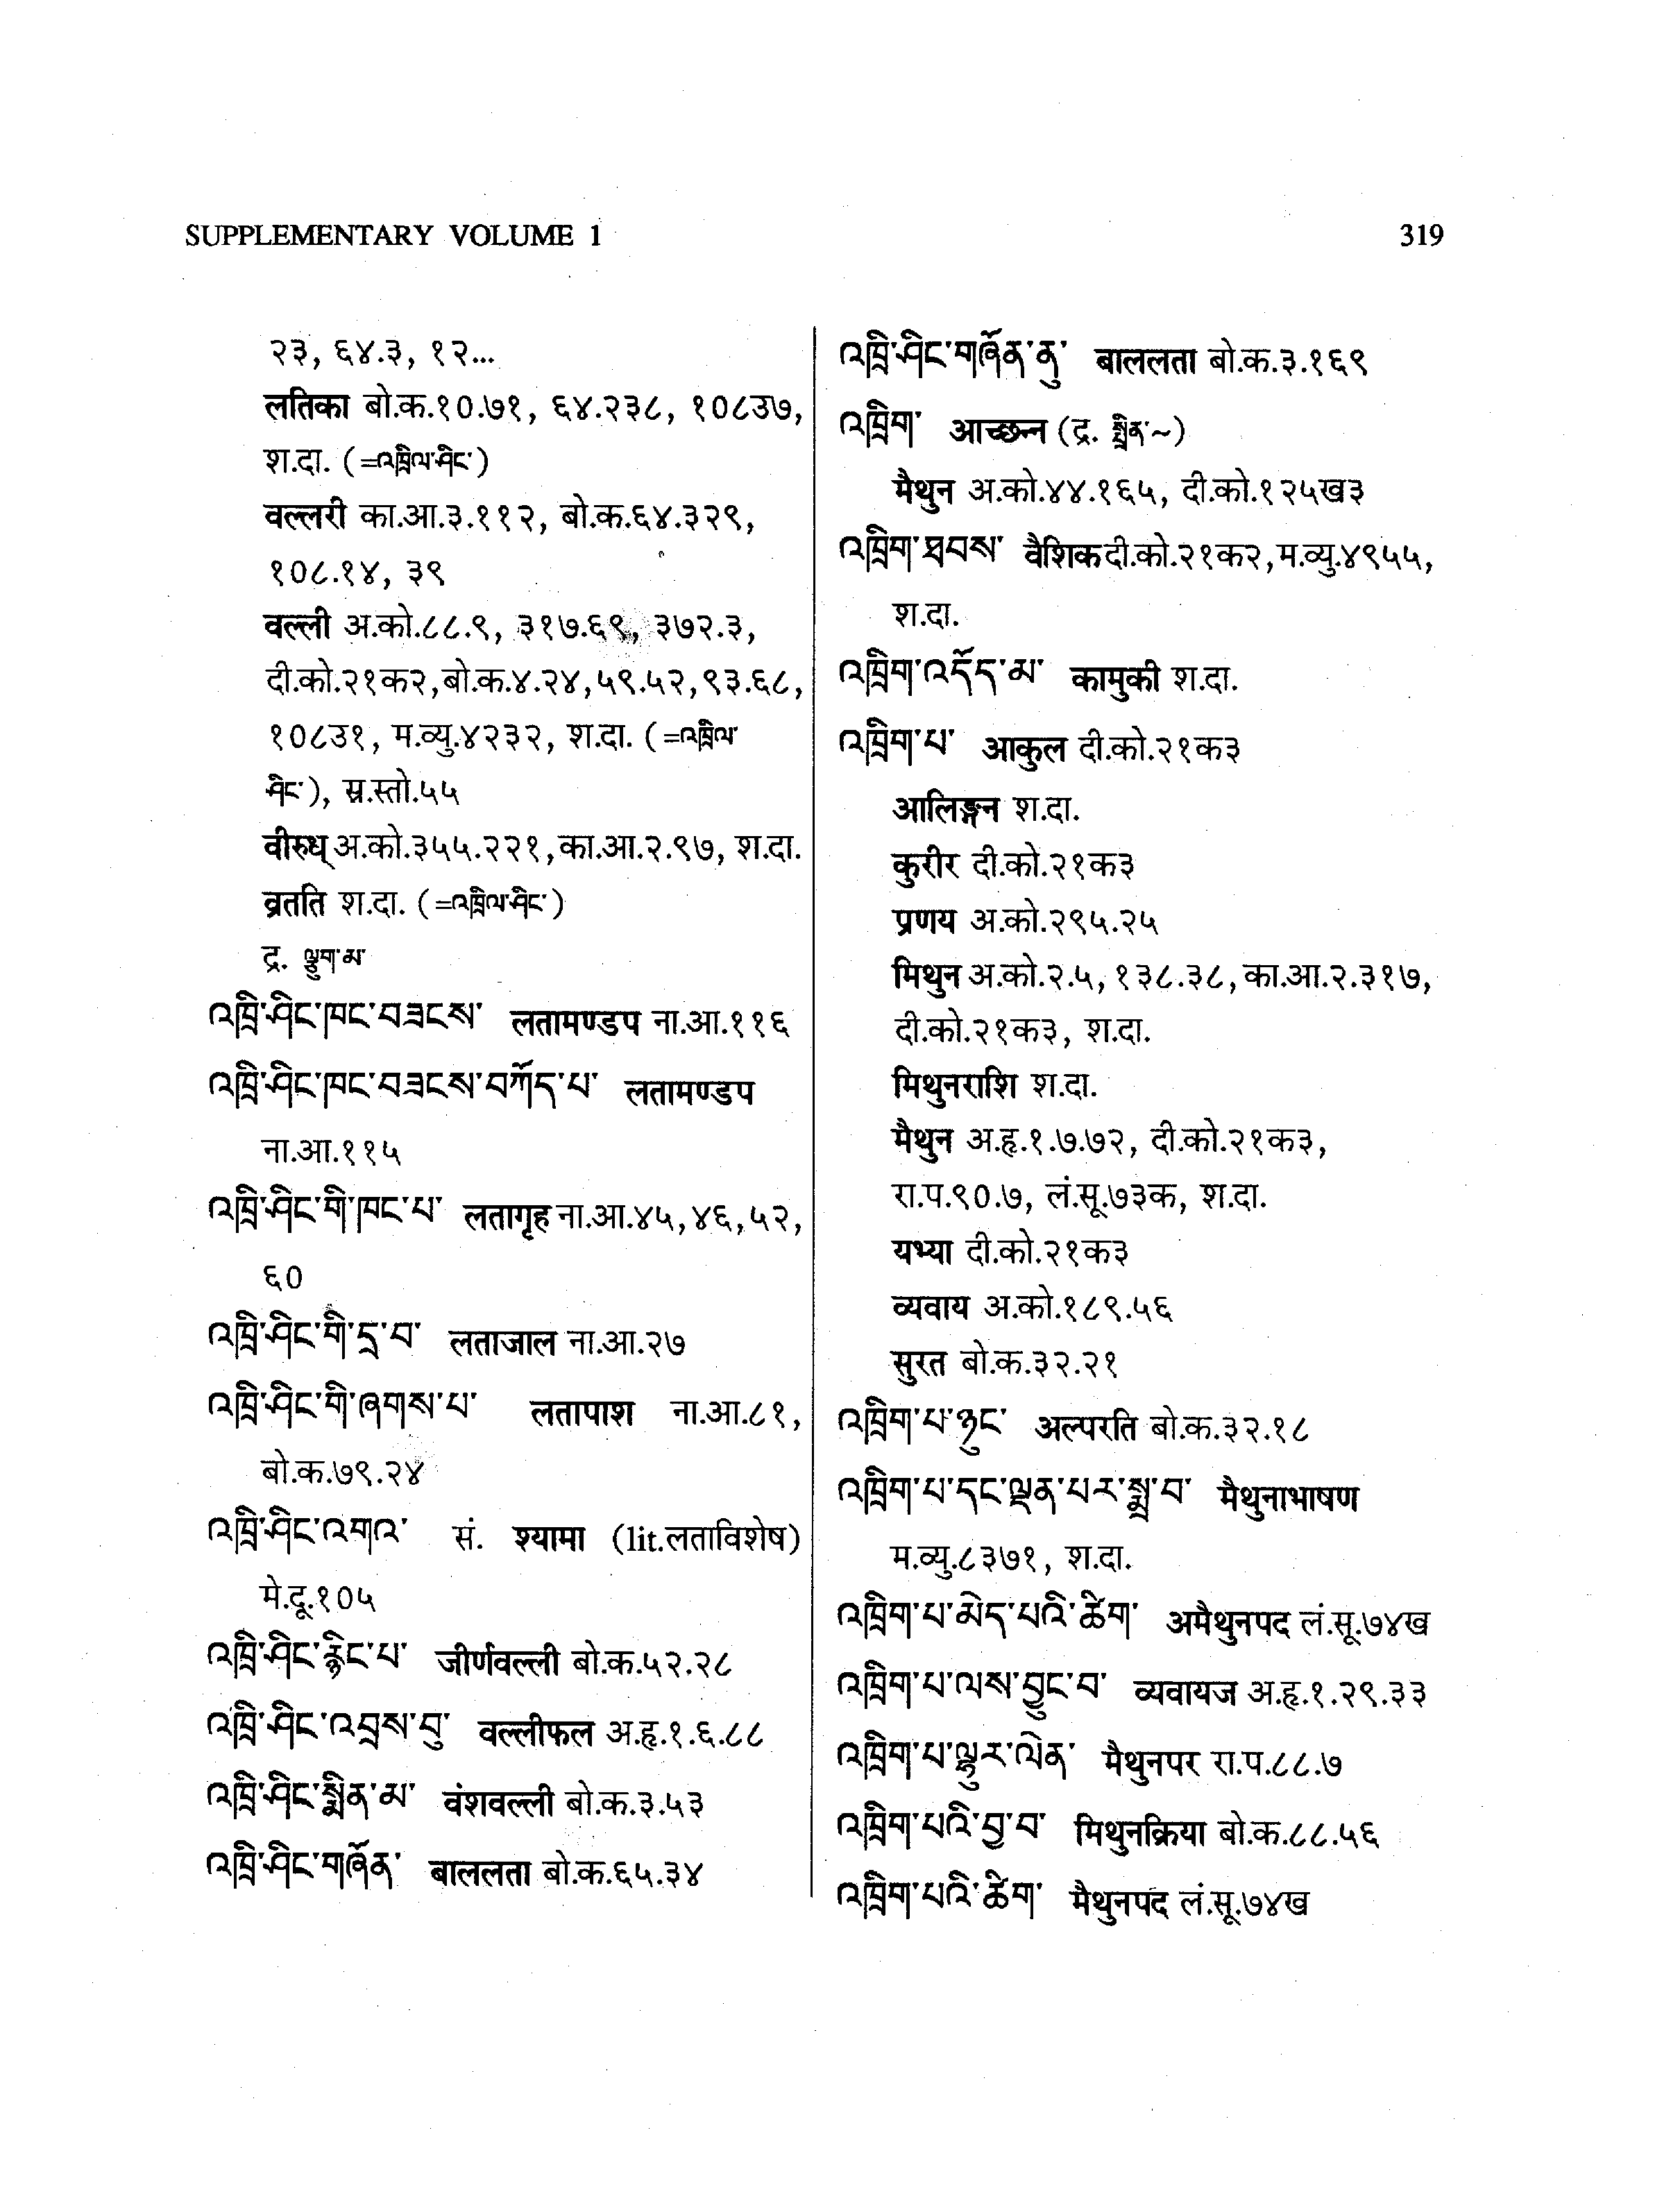 SUPPLEMENTARY VOLUME 1
319
२३, ६४.३, १२...
लतिका बो.क.१०.७१, ६४.२३८, १०८उ७,
श.दा. (=འཁྲིལ་ཤིང་)
वल्लरी का.आ.३.११२, बो.क.६४.३२९,
१०८.१४, ३९
वल्ली अ.को.८८.९, ३१७.६९, ३७२.३,
दी.को.२१क२, बो.क.४.२४, ५९.५२, ९३.६८,
१०८उ१, म.व्यु.४२३२, श.दा. (=འཁྲིལ་
ཤིང་), स्र.स्तो.५५
वीरुध् अ.को.३५५.२२१, का.आ.२.९७, श.दा.
व्रतति श.दा. (=འཁྲིལ་ཤིང་)
द्र. ལྕུག་མ་
འཁྲི་ཤིང་ཁང་བཟངས་ लतामण्डप ना.आ.११६
འཁྲི་ཤིང་ཁང་བཟངས་བཀོད་པ་ लतामण्डप
ना.आ.११५
འཁྲི་ཤིང་གི་ཁང་པ་ लतागृह ना.आ.४५, ४६, ५२,
६०
འཁྲི་ཤིང་གི་དྲ་བ་ लताजाल ना.आ.२७
འཁྲི་ཤིང་གི་ཞགས་པ་ लतापाश ना.आ.८१,
बो.क.७९.२४
འཁྲི་ཤིང་འགའ་ सं. श्यामा (lit.लताविशेष)
मे.दू.१०५
འཁྲི་ཤིང་རྙིང་པ་ जीर्णवल्ली बो.क.५२.२८
འཁྲི་ཤིང་འབྲས་བུ་ वल्लीफल अ.हृ.१.६.८८
འཁྲི་ཤིང་སྨིན་མ་ वंशवल्ली बो.क.३.५३
འཁྲི་ཤིང་གཞོན་ बाललता बो.क.६५.३४
འཁྲི་ཤིང་གཞོན་ནུ་ बाललता बो.क.३.१६९
འཁྲིག་ आच्छन्न (द्र. སྤྲིན་~)
मैथुन अ.को.४४.१६५, दी.को.१२५ख३
འཁྲིག་ཐབས་ वैशिक दी.को.२१क२, म.व्यु.४९५५,
श.दा.
འཁྲིག་འདོད་མ་ कामुकी श.दा.
འཁྲིག་པ་ आकुल दी.को.२१क३
आलिङ्गन श.दा.
कुरीर दी.को.२१क३
प्रणय अ.को.२९५.२५
मिथुन अ.को.२.५, १३८.३८, का.आ.२.३१७,
दी.को.२१क३, श.दा.
मिथुनराशि श.दा.
मैथुन अ.हृ.१.७.७२, दी.को.२१क३,
रा.प.९०.७, लं.सू.७३क, श.दा.
यभ्या दी.को.२१क३
व्यवाय अ.को.१८९.५६
सुरत बो.क.३२.२१
འཁྲིག་པ་ཉུང་ अल्परति बो.क.३२.१८
འཁྲིག་པ་དང་ལྡན་པར་སྨྲ་བ་ मैथुनाभाषण
म.व्यु.८३७१, श.दा.
འཁྲིག་པ་མེད་པའི་ཚིག་ अमैथुनपद लं.सू.७४ख
འཁྲིག་པ་ལས་བྱུང་བ་ व्यवायज अ.हृ.१.२९.३३
འཁྲིག་པ་ལྷུར་ལེན་ मैथुनपर रा.प.८८.७
འཁྲིག་པའི་བྱ་བ་ मिथुनक्रिया बो.क.८८.५६
འཁྲིག་པའི་ཚིག་ मैथुनपद लं.सू.७४ख